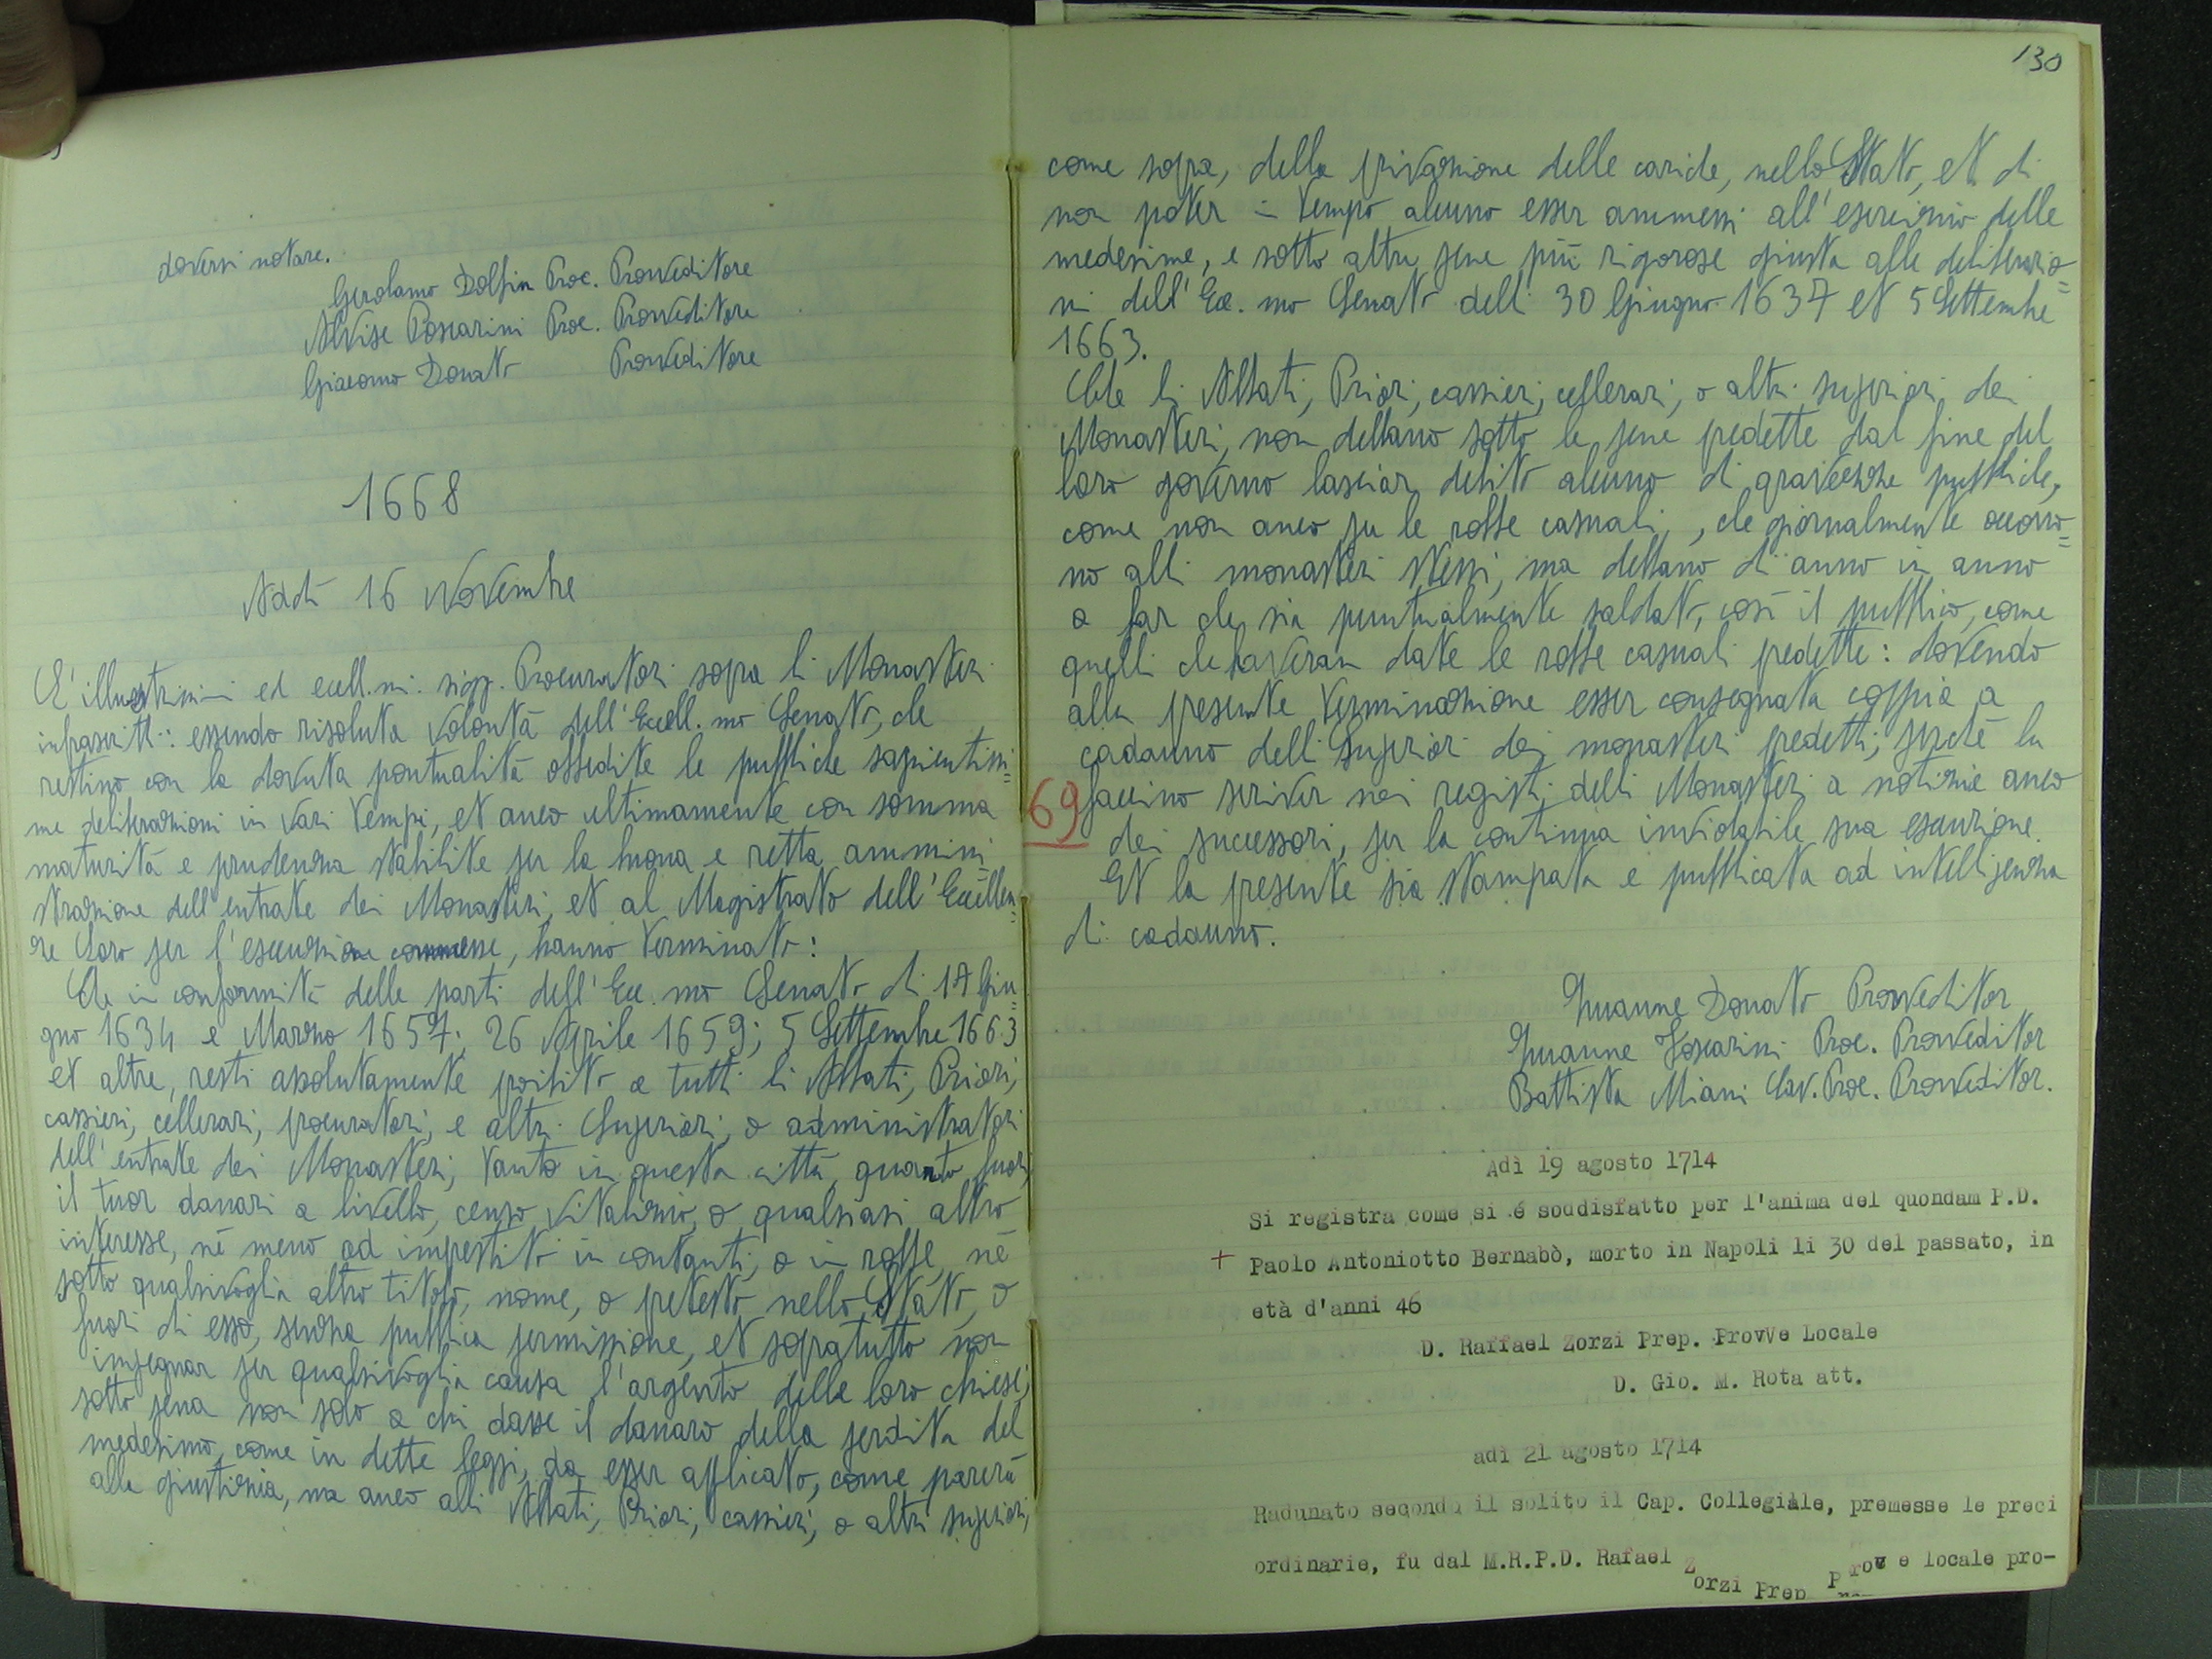 doversi notare.
Gerolamo Dolfin Proc. Proveditore
Alvise Foscarini Proc. Proveditore
Giacomo Donato Proveditore
1668
Addì 16 Novembre
L'illustrissimi ed ecell.mi. sigg. Procuratori sopra li Monasteri
infrascritti: essendo risoluta volontà dell'Ecell.mo Senato, che
restino con la dovuta pontualità obbedite le pubbliche sapientissi=
me deliberazioni in vari tempi, et anco ultimamente con somma
maturità e prudenza stabilite per la buona e retta ammini=
strazione dell'entrate dei Monasteri, et al Magistrato dell'Eccellen=
ze Loro per l'esecuzione commesse, hanno terminato:
Che in conformità delle parti dell'Ecc.mo Senato di 17 Giu=
gno 1634 e Marzo 1657; 26 Aprile 1659; 5 Settembre 1663
et altre, resti assolutamente proibito a tutti li Abbati, Priori,
cassieri, cellerari, procuratori, e altri Superiori, o administratori
dell'entrate dei Monasteri, tanto in questa città, quanto fuori,
il tuor danari a livello, censo, vitalizio, o qualsiasi altro
interesse, né meno ad imprestito in contanti, o in robbe, né
sotto qualsivoglia altro titolo, nome, o pretesto nello Stato, o
fuori di esso, senza pubblica permissione, et sopratutto non
impegnar per qualsivoglia causa l'argento delle loro chiese,
sotto pena non solo a chi dasse il danaro della perdita del
medesimo, come in dette leggi, da esser applicato, come parerà
alla giustizia, ma anco alli Abbati, Priori, cassieri, o altri superiori,
130
come sopra, della privazione delle cariche, nello Stato, et di
non poter in tempo alcuno esser ammessi all'esercizio delle
medesime, e sotto altre pene più rigorose giusta alle deliberazio=
ni dell'Ecc.mo Senato delli 30 Giugno 1637 et 5 Settembre
1663.
Che li Abbati, Priori, cassieri, cellerari, o altri superiori dei
Monasteri, non debbano sotto le pene predette dal fine del
loro governo lasciar debito alcuno di gravezze pubbliche,
come non anco per le robbe casuali, che giornalmente occorro=
no alli monasteri stessi, ma debbano di anno in anno
a far che sia puntualmente saldato, così il pubblico, come
quelli che haveran date le robbe casuali predette: dovendo
alla presente terminazione esser consegnata coppia a
cadauno delli Superiori dei monasteri predetti, perchè la
69 faccino scriver nei registri delli Monasteri a notizia anco
dei successori, per la continua inviolabile sua esecuzione.
Et la presente sia stampata e pubblicata ad intelligenza
di cadauno.
Zuanne Donato Proveditor
Zuanne Foscarini Proc. Proveditor
Battista Miani Cav. Proc. Proveditor.
Adì 19 agosto 1714
Si registra come si é soddisfatto per l'anima del quondam P.D.
+ Paolo Antoniotto Bernabò, morto in Napoli li 30 del passato, in
età d'anni 46
D. Raffael Zorzi Prep. ProvVe Locale
D. Gio. M. Rota att.
adì 21 agosto 1714
Radunato secondo il solito il Cap. Collegiale, premesse le preci
ordinarie, fu dal M.R.P.D. Rafael Zorzi Prep Prov e locale pro-